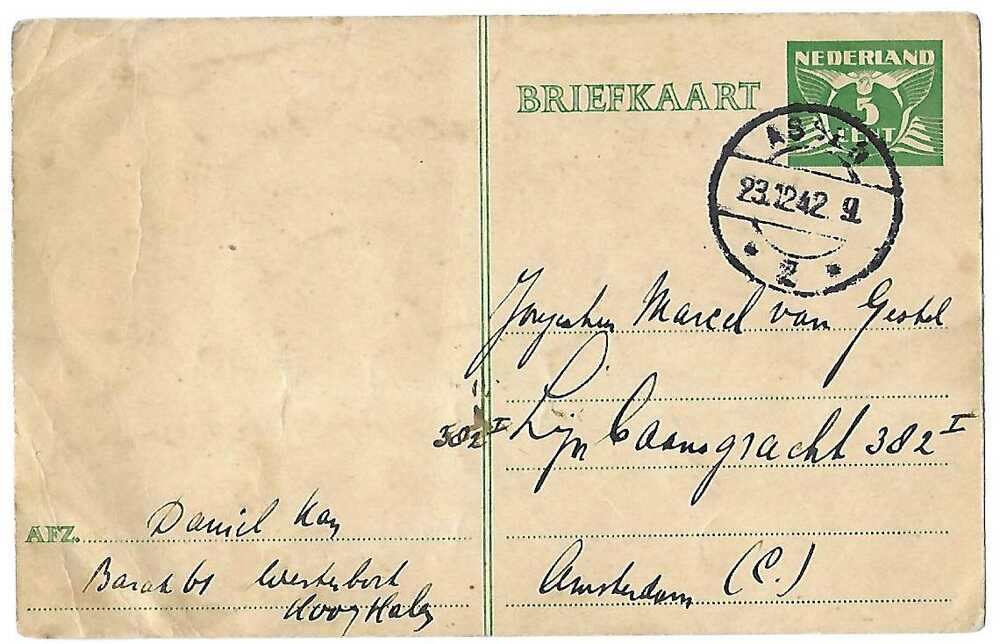 NEDERLAND
5
CENT
BRIEFKAART
ASSEN
23.12.42. 9
2
Marcel van Gestel
Lijnbaansgracht 382 I
382 I
Amsterdam (C.)
AFZ. Daniel Kan
Barak 61 Westerbork
Hooghalen